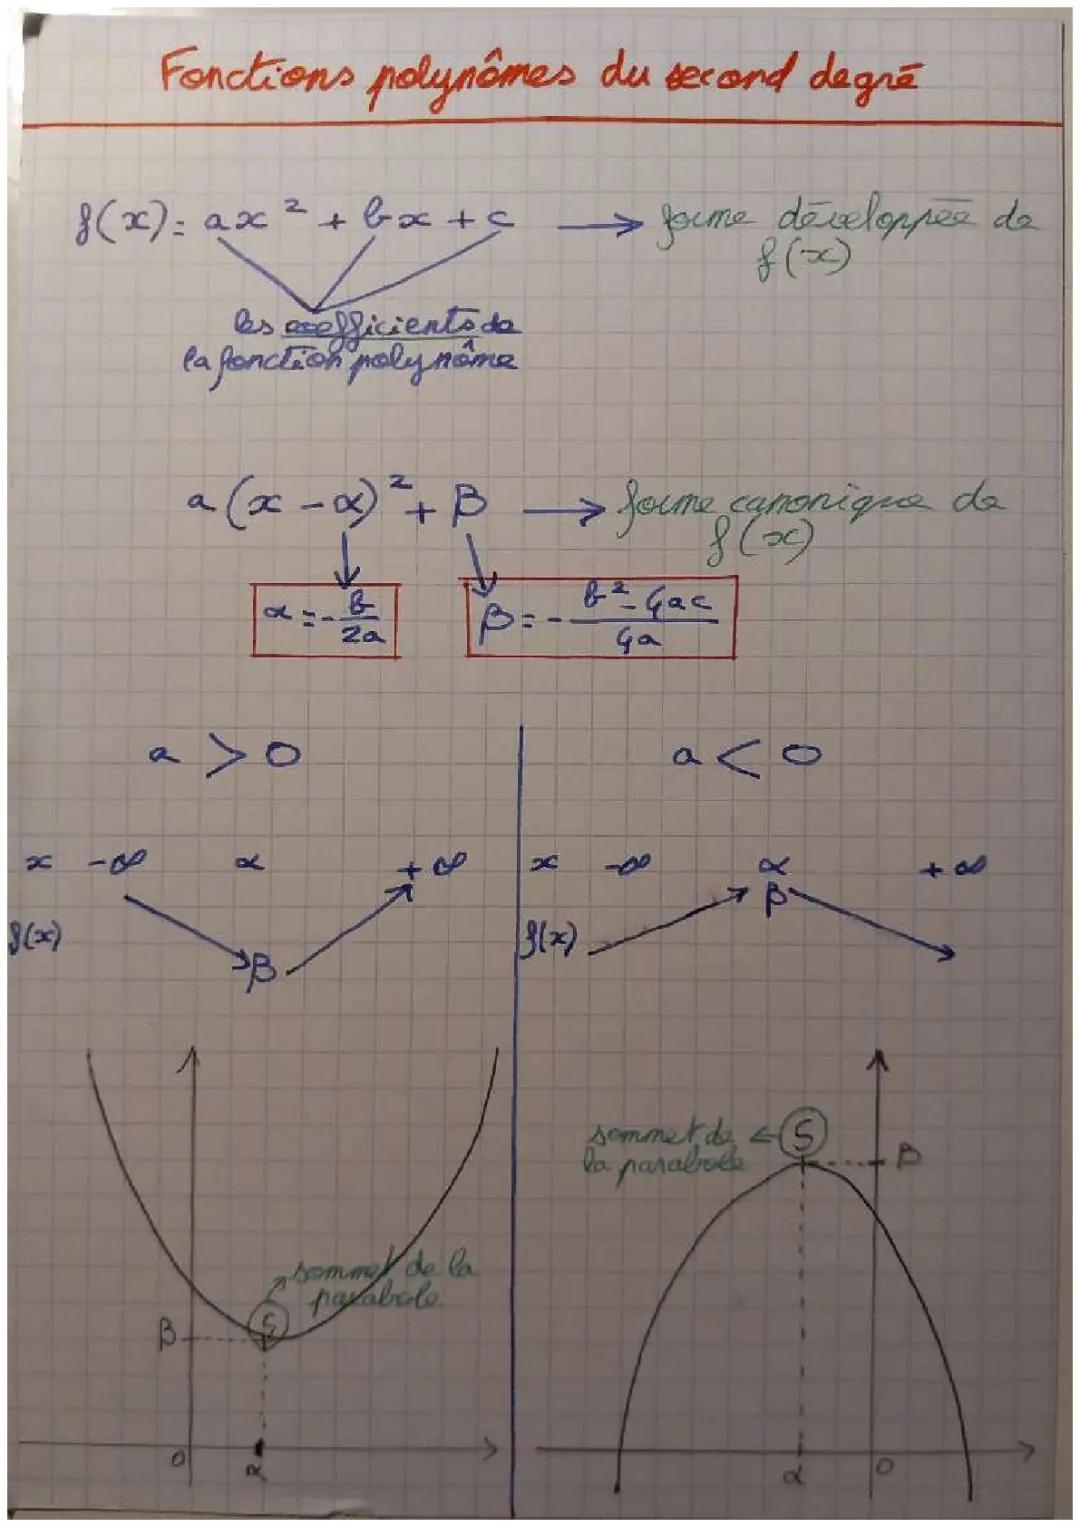 Fonctions polynômes du second degré
f(x) = ax² + bx + c → forme développée de
f(x)
les coefficients de
la fonction polynôme
a(x - α)² + β → forme canonique de
f(x)
α = - b/2a
β = - b² - 4ac/4a
a > 0
x -∞ α +∞
f(x)
β
sommet de la
parabole
S
β
O
α
a < 0
x -∞ α +∞
β
f(x)
sommet de ← S
la parabole
β
α
O